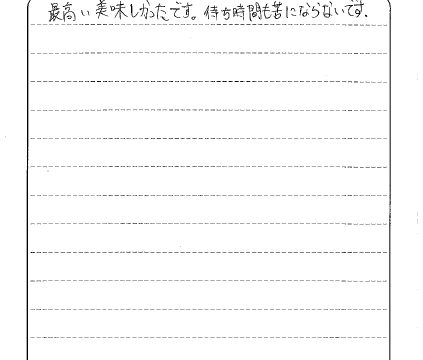 最高に美味しかったです。待ち時間も苦にならないです.